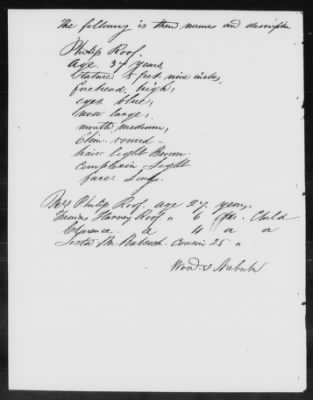 The following is their names and description
Philip Roof.
Age 37 years,
Stature 5 feet nine inches,
forehead, high,
eyes blue,
nose large,
mouth medium,
Chin round
hair light Brown
complexion Light
face Long.
Philip Roof. age 27 years,
Francis Harvey Roof " 6 Child
Clarence " 4 " "
M. Babcock. cousin 25 "